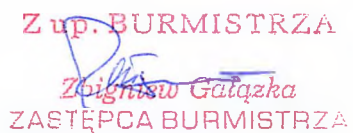 Z up. BURMISTRZA
Zbigniew Gałązka
ZASTĘPCA BURMISTRZA